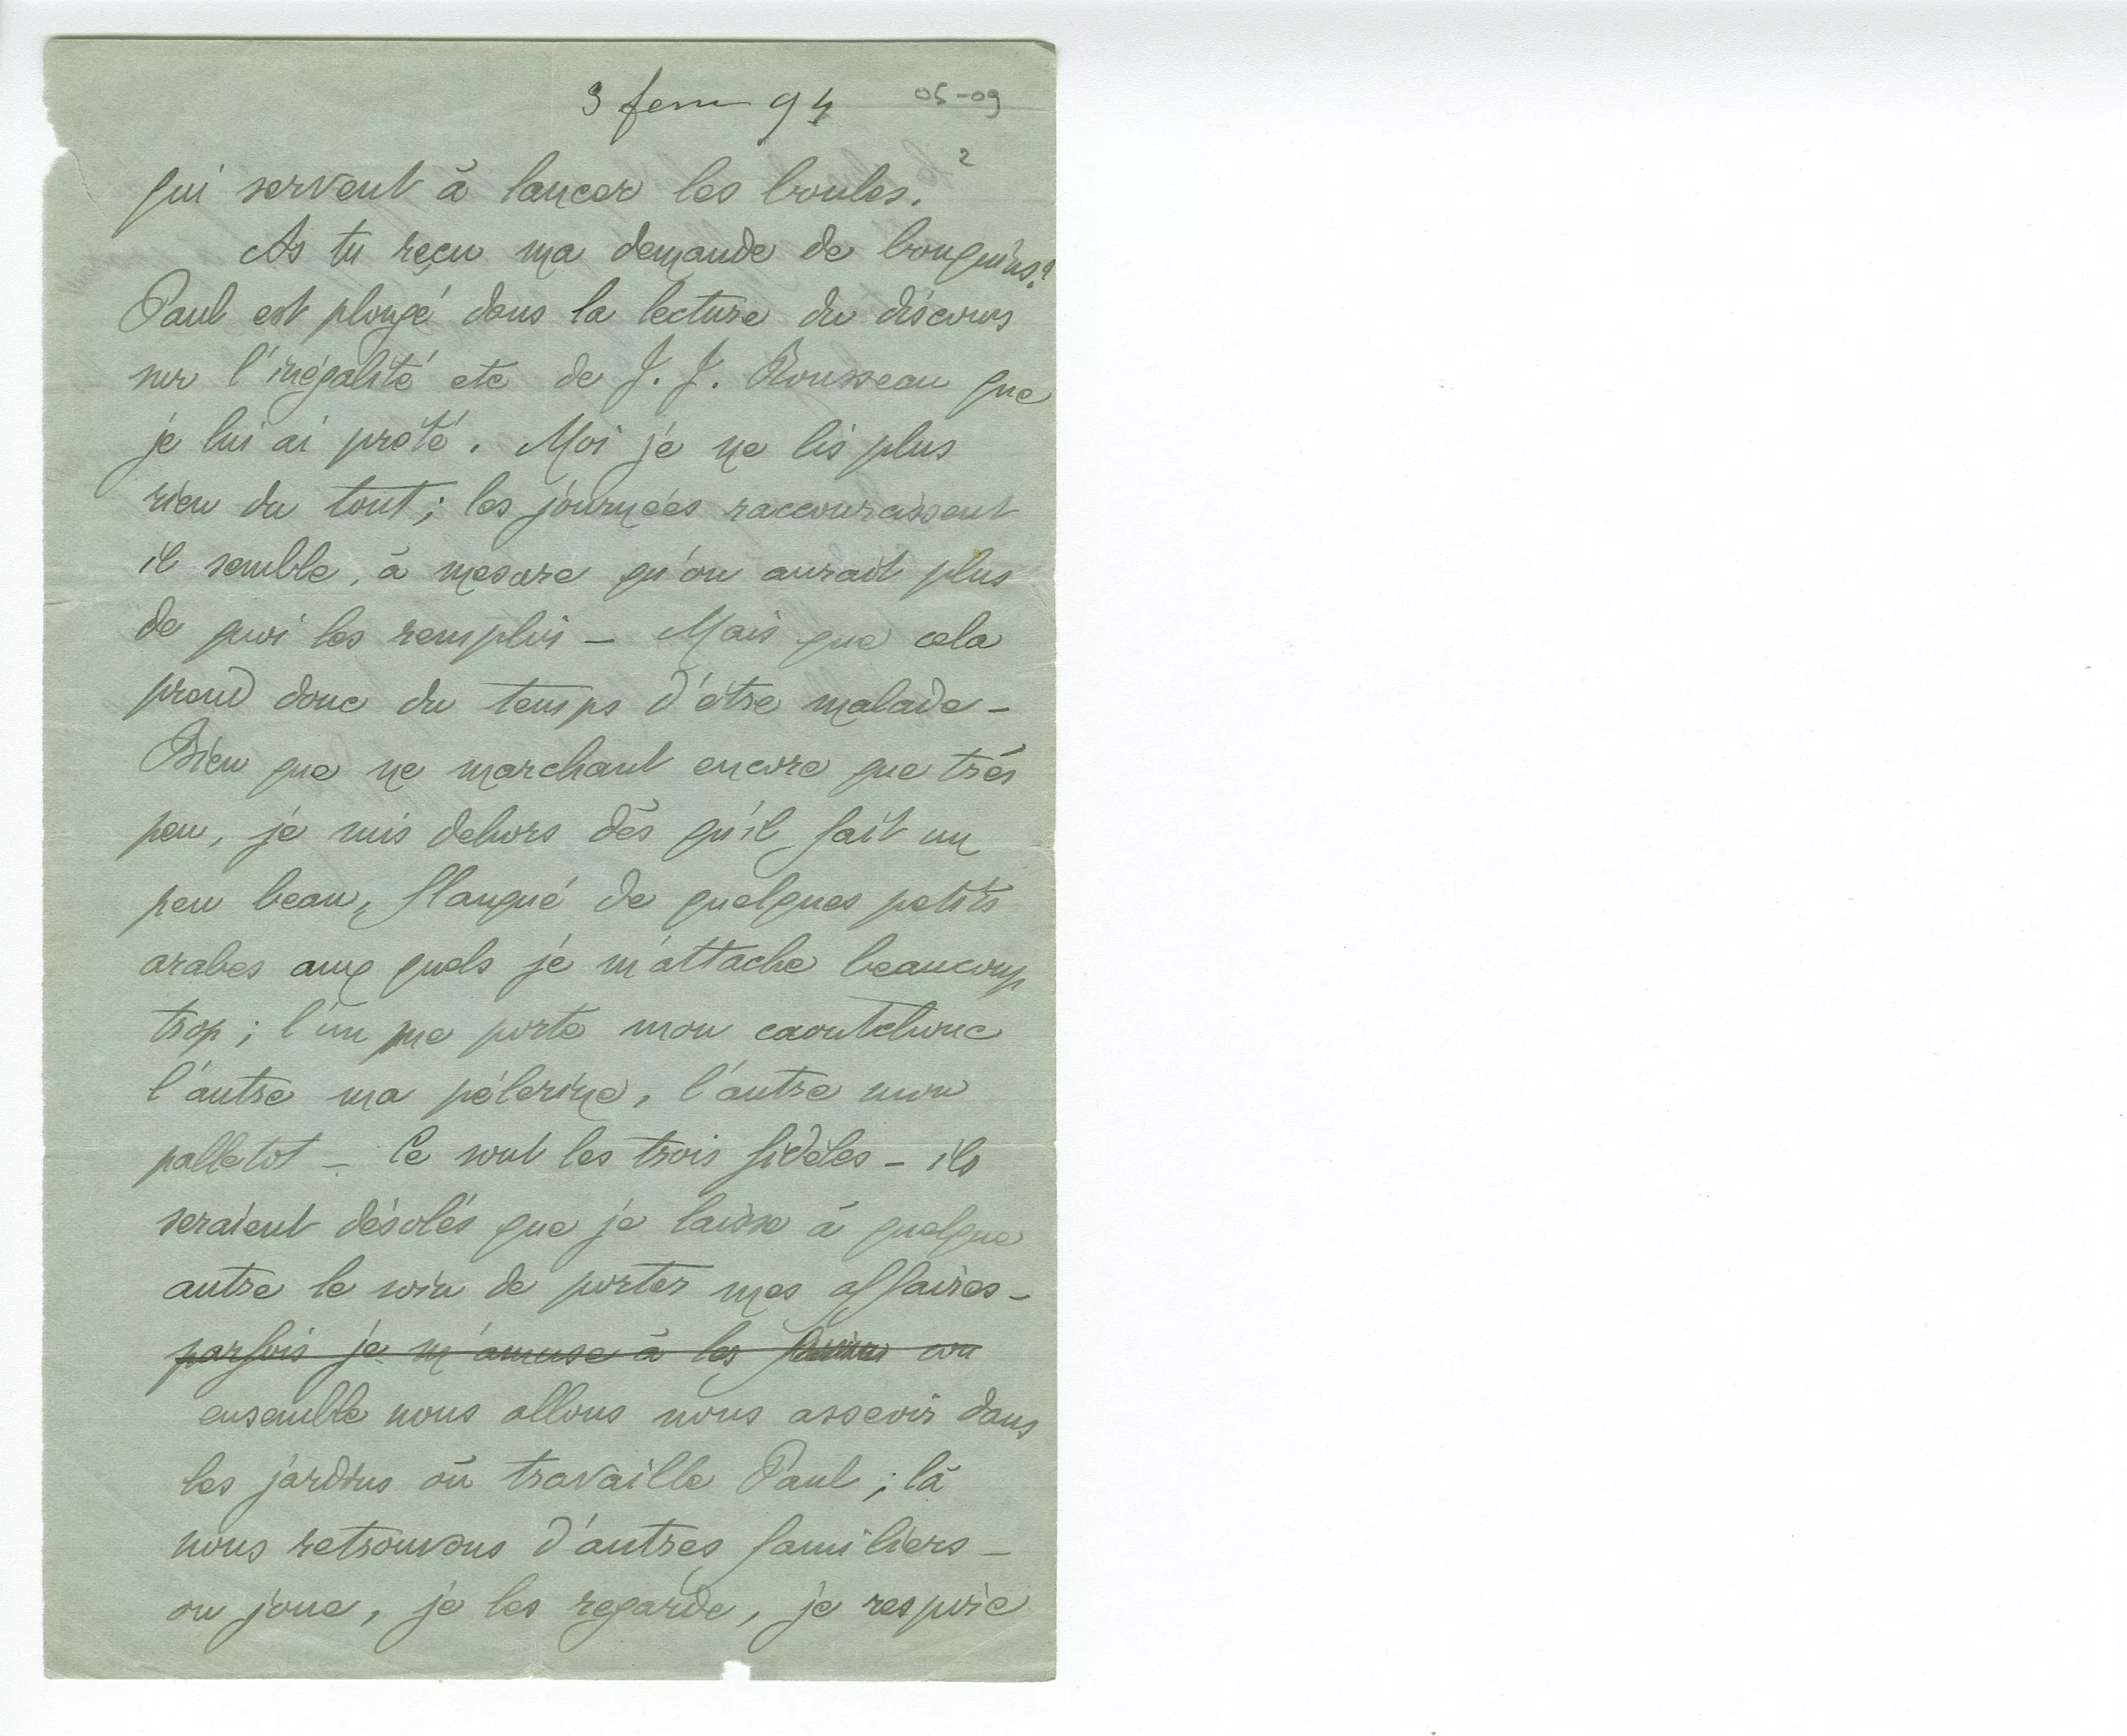 3 fevr 94 05-09
2
qui servent à lancer les boules.
As tu reçu ma demande de bouquins?
Paul est plongé dans la lecture du discours
sur l'inégalité etc de J. J. Rousseau que
je lui ai prêté. Moi je ne lis plus
rien du tout; les journées raccourcissent
il semble, à mesure qu'on aurait plus
de quoi les remplir – Mais que cela
prend donc du temps d'être malade –
Bien que ne marchant encore que très
peu, je suis dehors dès qu'il fait un
peu beau, flanqué de quelques petits
arabes aux quels je m'attache beaucoup
trop; l'un me porte mon caoutchouc
l'autre ma pélerine, l'autre mon
palletot – Ce sont les trois fidèles – ils
seraient désolés que je laisse à quelque
autre le soin de porter mes affaires –
parfois je m'amuse à les
ensemble nous allons nous asseoir dans
les jardins où travaille Paul; là
nous retrouvons d'autres familiers –
on joue, je les regarde, je respire